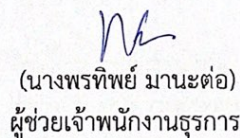 (นางพรทิพย์ มานะต่อ)
ผู้ช่วยเจ้าพนักงานธุรการ